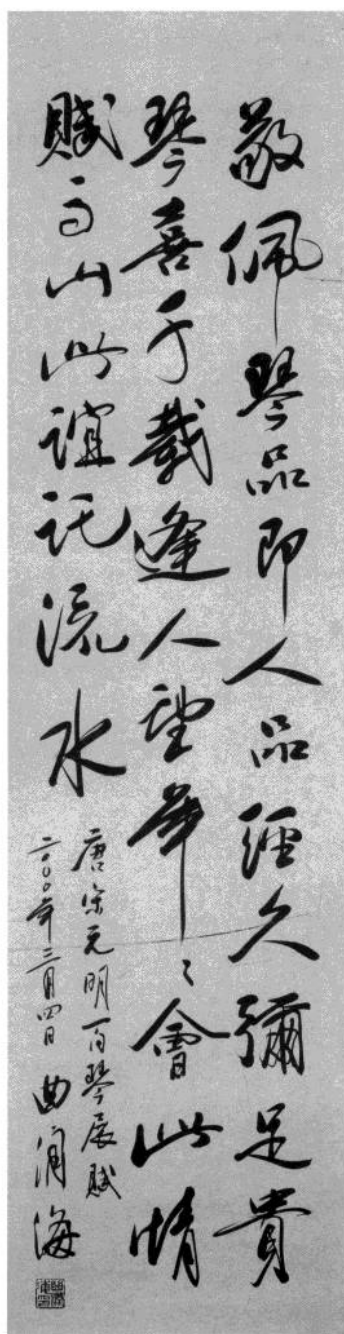 敬佩琴品即人品經久彌足貴
琴喜千載逢人望年〻會此情
賦高山此誼託流水
唐宋元明百琴展賦
二〇〇〇年三月四日 曲润海